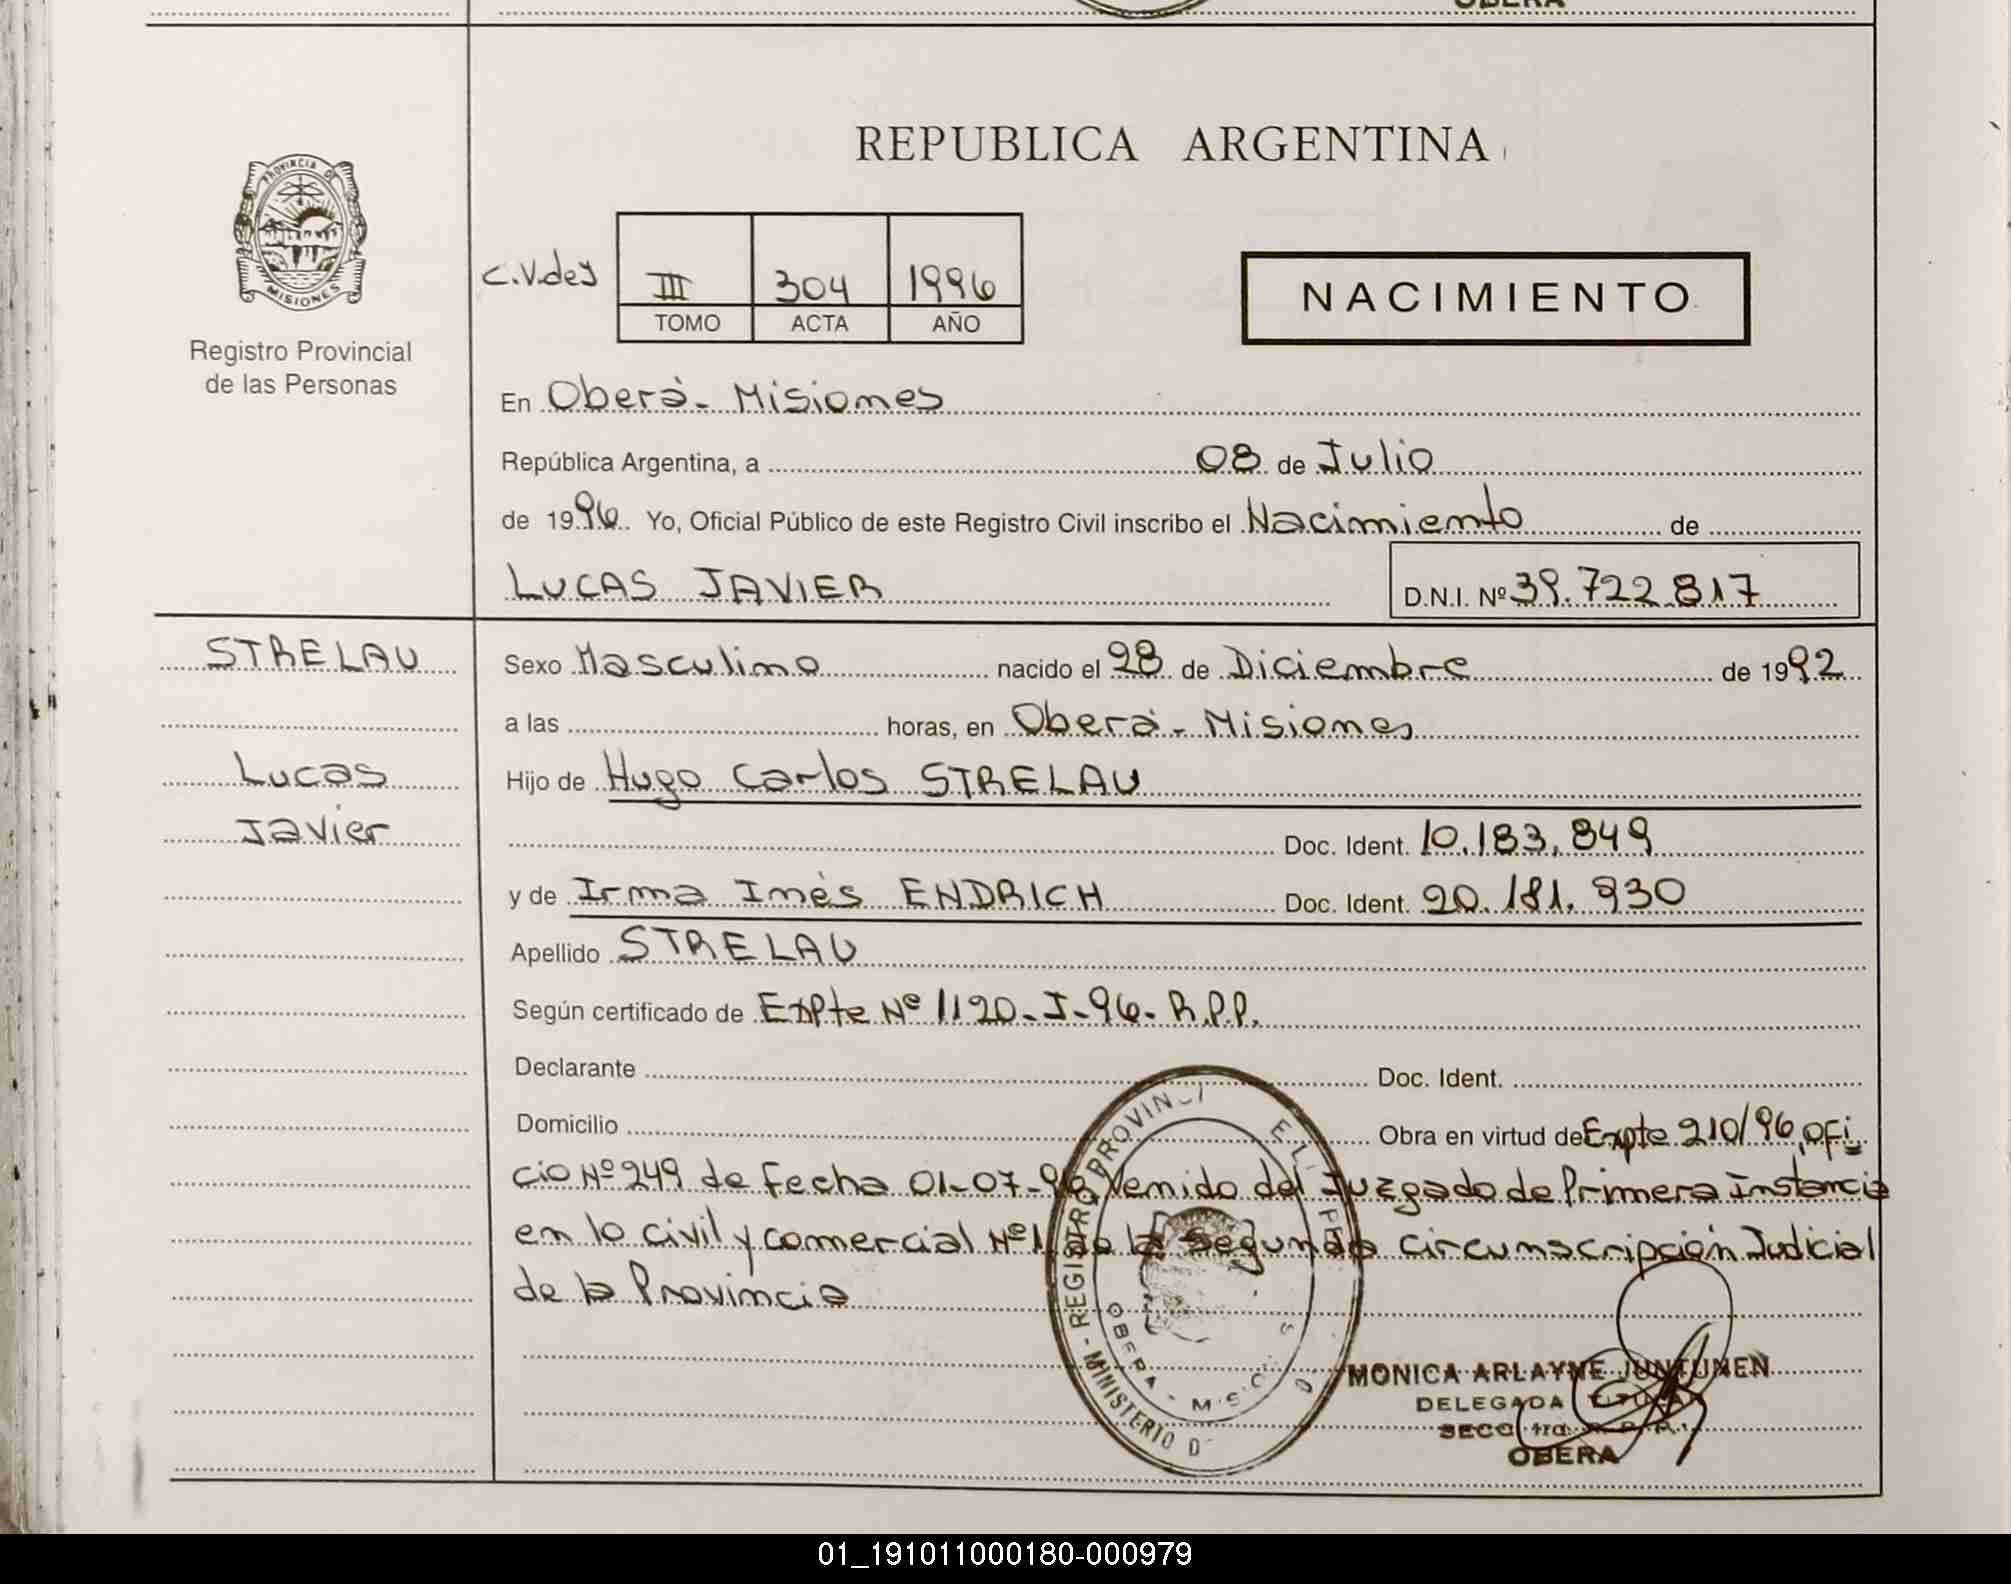 OBERA
REPUBLICA ARGENTINA
PROVINCIA DE
MISIONES
Registro Provincial
de las Personas
III 304 1996
TOMO ACTA AÑO
NACIMIENTO
En Oberá - Misiones
República Argentina, a 08 de Julio
de 1996 Yo, Oficial Público de este Registro Civil inscribo el Nacimiento de
LUCAS JAVIER D.N.I. Nº 39.722.817
STRELAU
Lucas
Javier
Sexo Masculino nacido el 28 de Diciembre de 1992
a las horas, en Oberá - Misiones
Hijo de Hugo Carlos STRELAU
Doc. Ident. 10.183.849
y de Irma Inés ENDRICH Doc. Ident. 20.181.930
Apellido STRELAU
Según certificado de Expte Nº 1120-I-96-R.P.P.
Declarante Doc. Ident.
Domicilio Obra en virtud de Expte 210/96, ofi
cio Nº 249 de fecha 01-07-96 venido del Juzgado de Primera Instancia
en lo civil y comercial Nº 1 de la segunda circunscripción Judicial
de la Provincia
MINISTERIO D - REGISTRO PROVINCI
OBERA - MISIO
MONICA ARLAYNE JUNTUNEN
DELEGADA TITULAR
OBERA
01_191011000180-000979